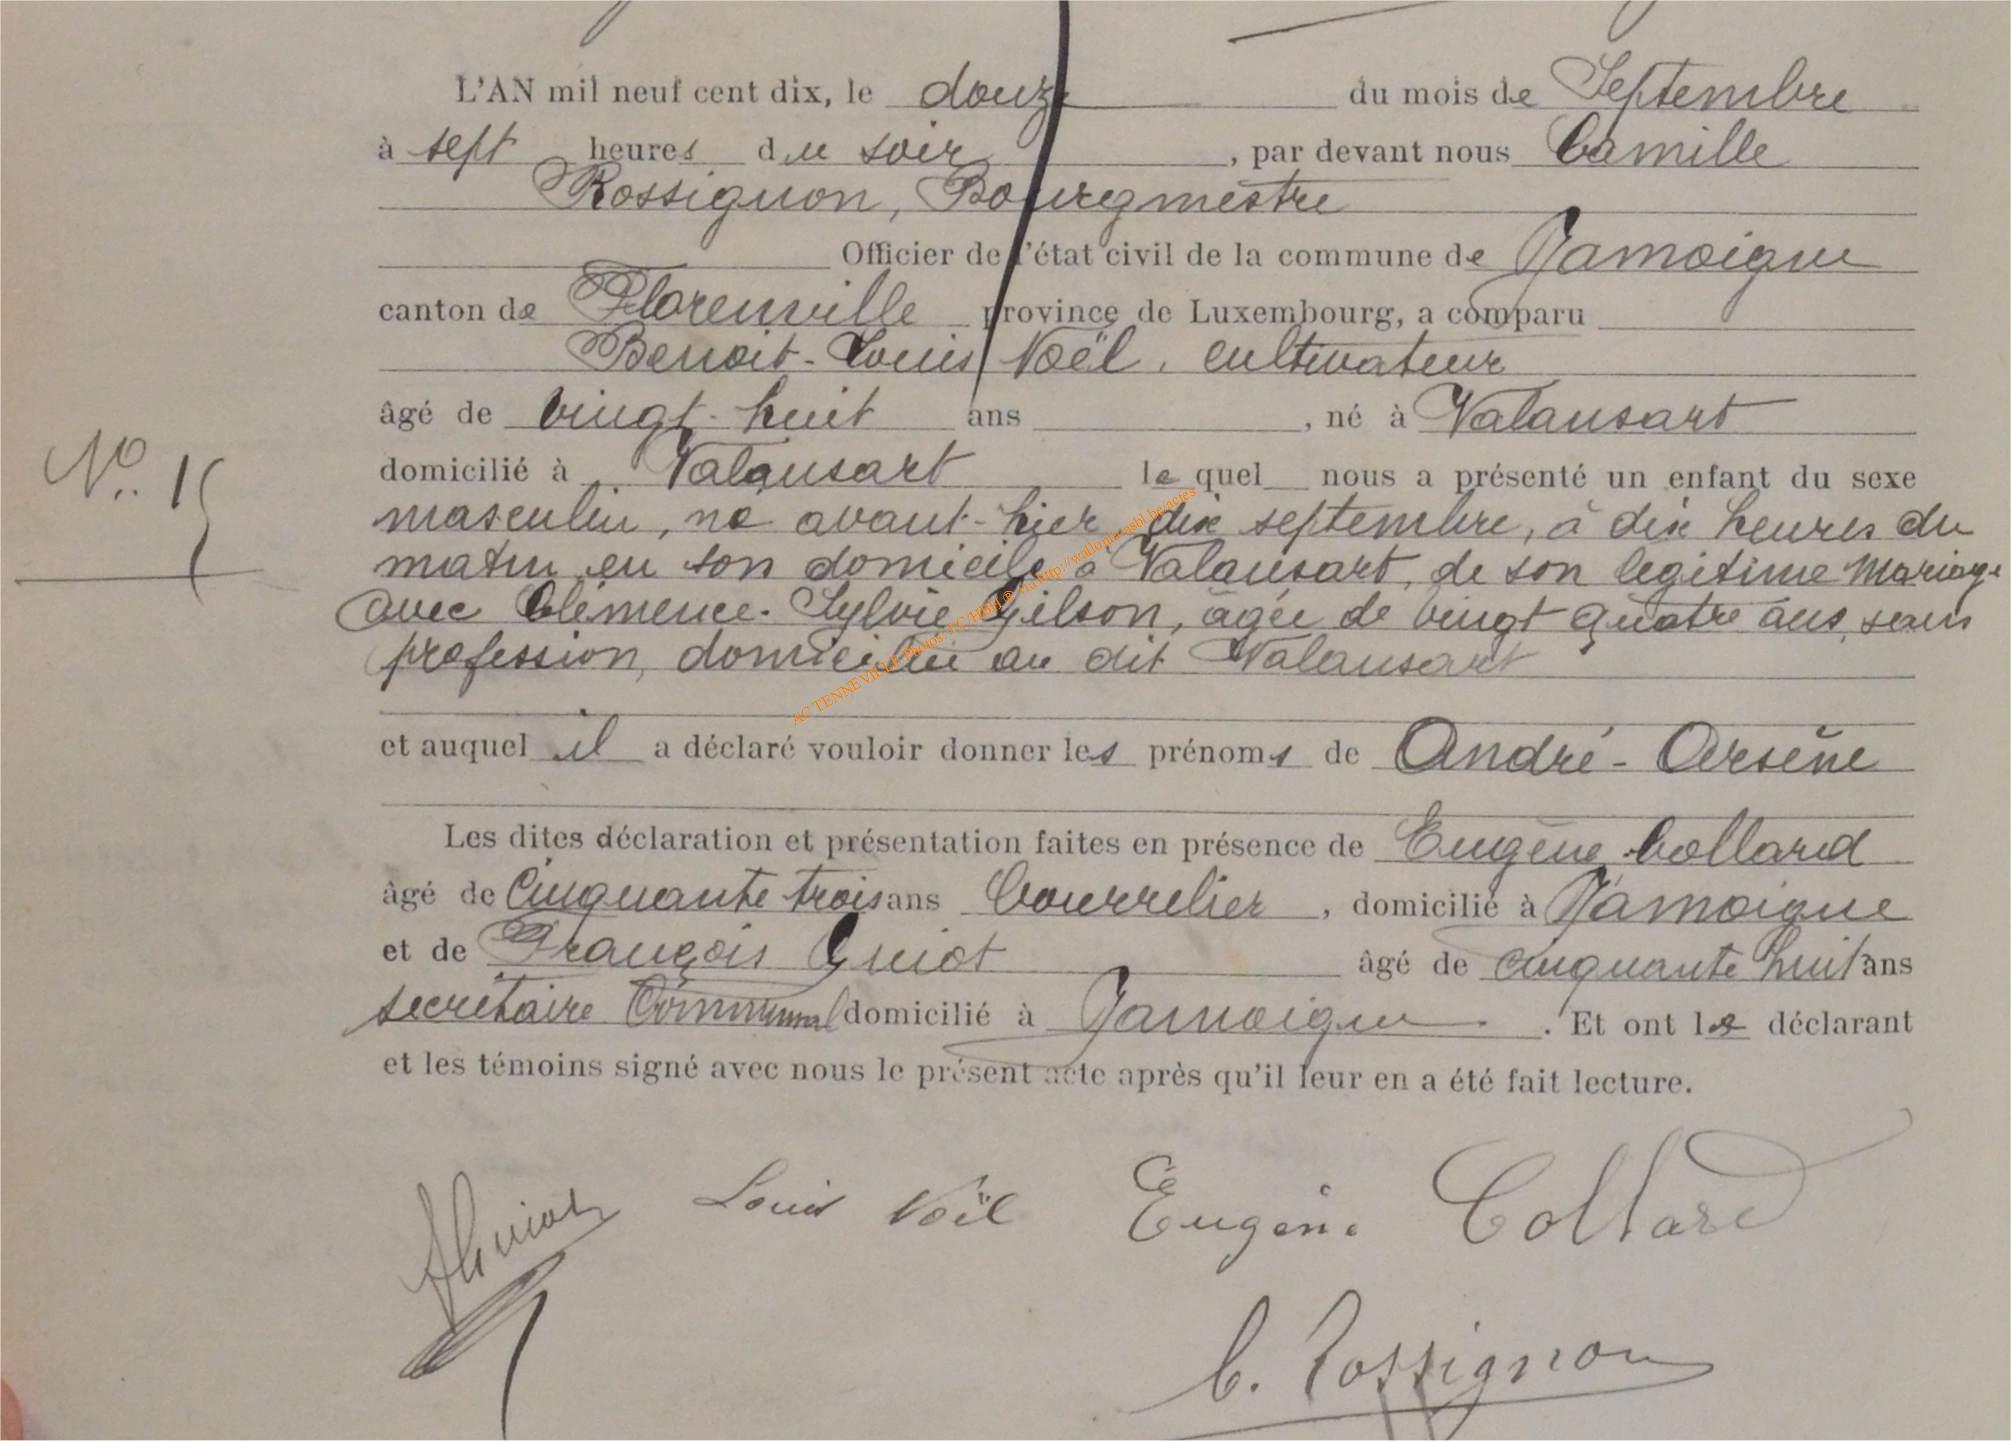 L'AN mil neuf cent dix, le douze du mois de Septembre
à sept heures du soir, par devant nous Camille
Rossignon, Bourgmestre
Officier de l'état civil de la commune de Jamoigne
canton de Florenville province de Luxembourg, a comparu
Benoit-Louis Noël, cultivateur
âgé de vingt-huit ans, né à Valansart
domicilié à Valansart lequel nous a présenté un enfant du sexe
masculin, né avant-hier dix septembre, à dix heures du
matin en son domicile à Valansart, de son légitime mariage
avec Clémence-Sylvie Gilson, âgée de vingt quatre ans, sans
profession, domiciliée au dit Valansart
et auquel il a déclaré vouloir donner les prénoms de André-Arsène
Les dites déclaration et présentation faites en présence de Eugène Collard
âgé de Cinquante trois ans bourrelier, domicilié à Jamoigne
et de François Guiot âgé de cinquante huit ans
secrétaire Communal domicilié à Jamoigne. Et ont le déclarant
et les témoins signé avec nous le présent acte après qu'il leur en a été fait lecture.
No. 15
Guiot Louis Noël Eugène Collard
C. Rossignon
AC TENNEVILLE Photos: J-C HHH ® via http://wallonia-asbl.be/actes